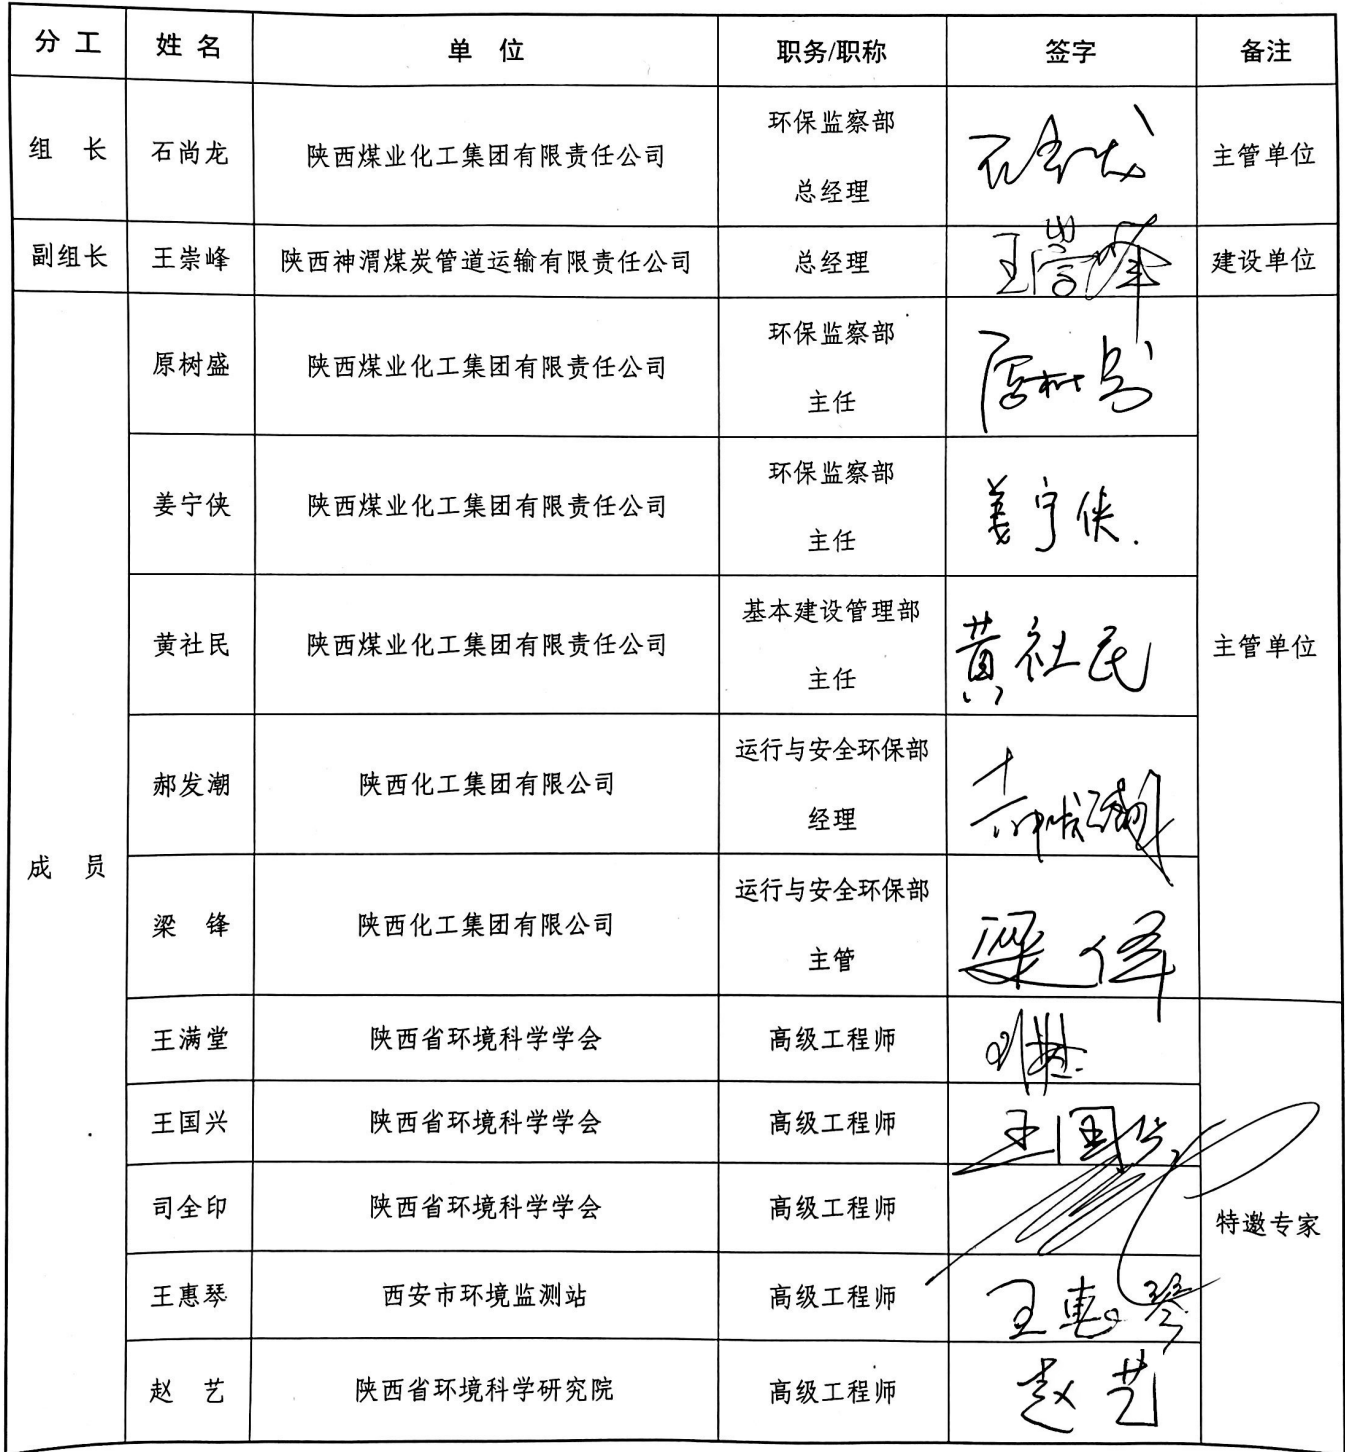 分 工 姓 名 单 位 职务/职称 签字 备注
组 长 石尚龙 陕西煤业化工集团有限责任公司 环保监察部 总经理 主管单位
副组长 王崇峰 陕西神渭煤炭管道运输有限责任公司 总经理 王崇峰 建设单位
成 员
原树盛 陕西煤业化工集团有限责任公司 环保监察部 主任
姜宁侠 陕西煤业化工集团有限责任公司 环保监察部 主任 姜宁侠
黄社民 陕西煤业化工集团有限责任公司 基本建设管理部 主任 黄社民
主管单位
郝发潮 陕西化工集团有限公司 运行与安全环保部 经理
梁 锋 陕西化工集团有限公司 运行与安全环保部 主管 梁锋
王满堂 陕西省环境科学学会 高级工程师
王国兴 陕西省环境科学学会 高级工程师 王国兴
司全印 陕西省环境科学学会 高级工程师
特邀专家
王惠琴 西安市环境监测站 高级工程师 王惠琴
赵 艺 陕西省环境科学研究院 高级工程师 赵艺